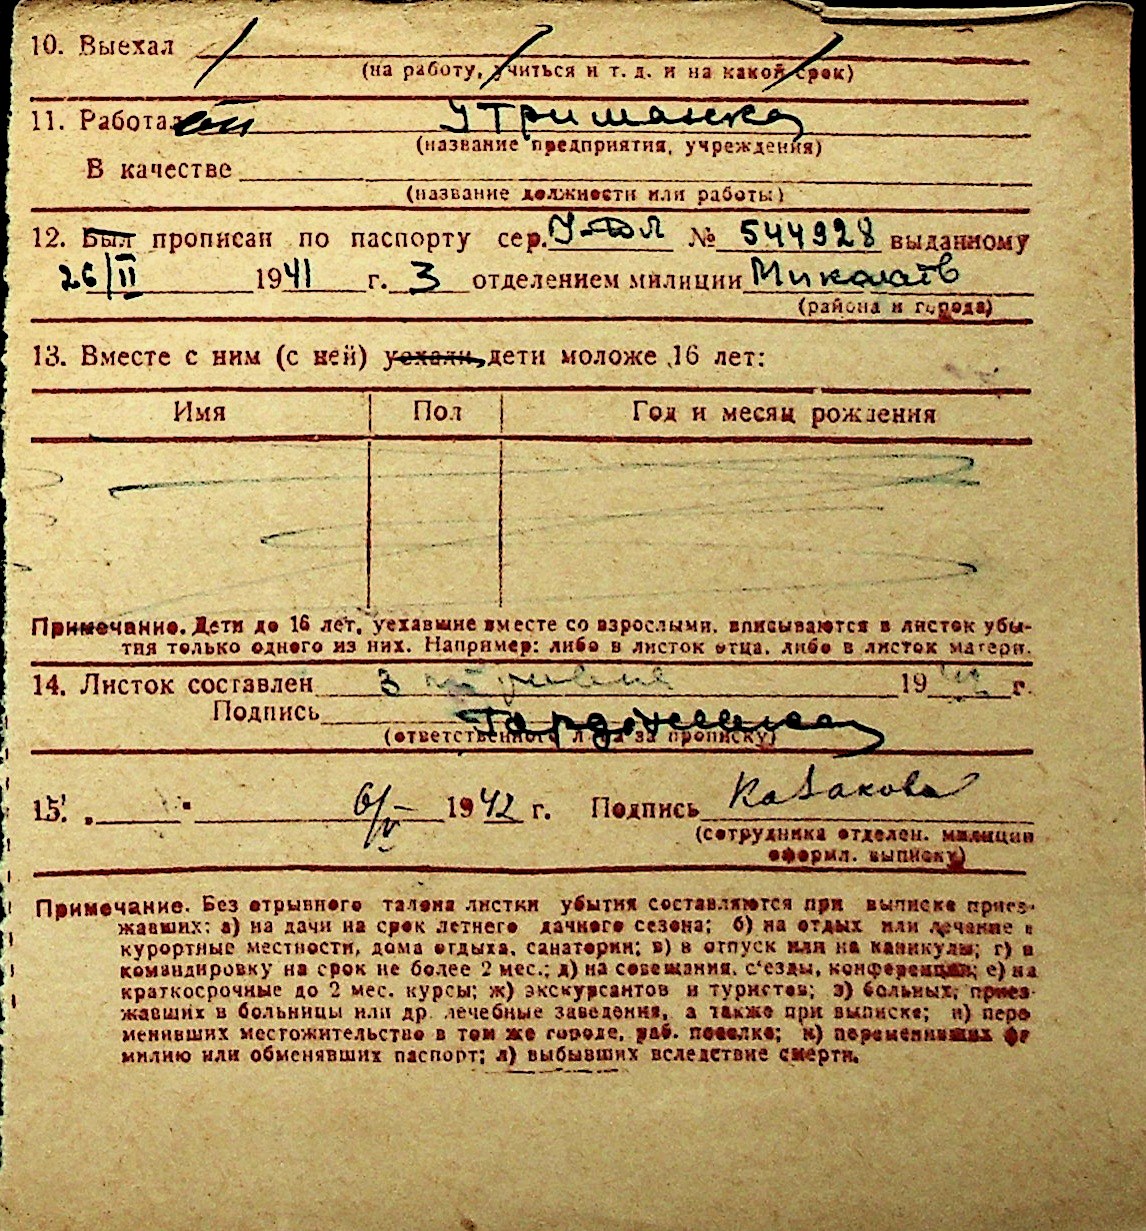 10. Выехал
(на работу, учиться и т. д. и на какой срок)
11. Работал Утриманка
(название предприятия, учреждения)
В качестве
(название должности или работы)
12. Был прописан по паспорту сер. № 544928 выданному
26/II 1941 г. 3 отделением милиции Миколаїв
(района и города)
13. Вместе с ним (с ней) уехали дети моложе 16 лет:
Имя Пол Год и месяц рождения
Примечание. Дети до 16 лет, уехавшие вместе со взрослыми, вписываются в листок убы-
тия только одного из них. Например: либо в листок отца, либо в листок матери.
14. Листок составлен 3 травня 19 г.
Подпись
(ответственного лица за прописку)
15. 6/V 1942 г. Подпись Казакова
(сотрудника отделен. милиции
оформл. выписку)
Примечание. Без отрывного талона листки убытия составляются при выписке приез-
жавших: а) на дачи на срок летнего дачного сезона; б) на отдых или лечение в
курортные местности, дома отдыха, санатории; в) в отпуск или на каникулы; г) в
командировку на срок не более 2 мес.; д) на совещания, с'езды, конференции; е) на
краткосрочные до 2 мес. курсы; ж) экскурсантов и туристов; з) больных, приез-
жавших в больницы или др. лечебные заведения, а также при выписке; и) пере
менивших местожительство в том же городе, раб. поселке; к) переменивших фа
милию или обменявших паспорт; л) выбывших вследствие смерти.